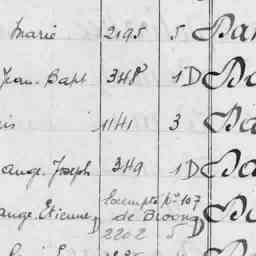 Marie 2195 5 Ba
Jean-Bapt 348 1D Ba
is 1141 3 Ba
ange-Joseph 349 1D Ba
ange-Etienne Compte No 107
de D
2202 5